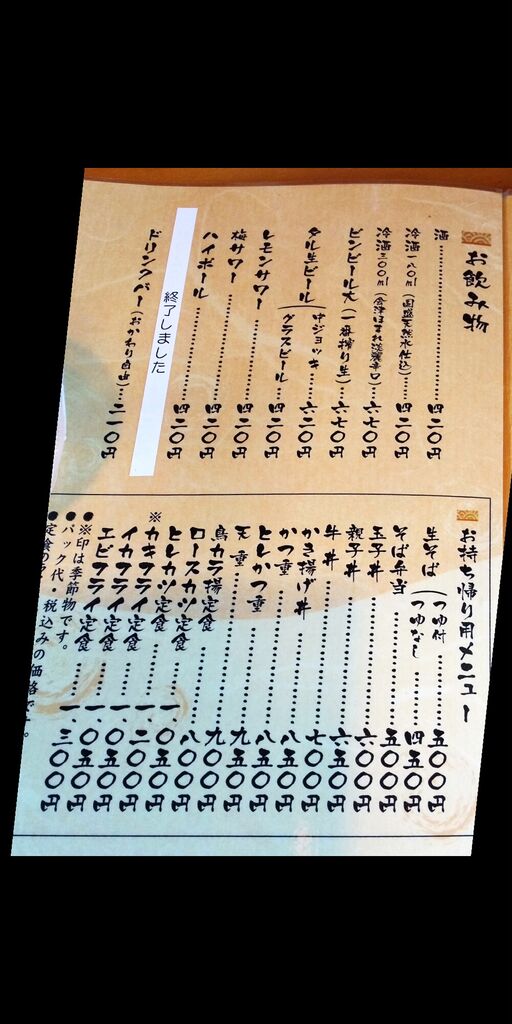 お飲み物
酒…………四二〇円
冷酒一八〇ml(国盛天然水仕込)…四二〇円
冷酒三〇〇ml(会津ほまれ淡麗辛口)…六七〇円
ビンビール大(一番搾り生)…六七〇円
タル生ビール(中ジョッキ……六二〇円
グラスビール……四二〇円
レモンサワー…………四二〇円
梅サワー…………四二〇円
ハイボール…………四二〇円
終了しました
ドリンクバー(おかわり自由)…二一〇円
お持ち帰り用メニュー
生そば(つゆ付……五〇〇円
つゆなし……四五〇円
そば弁当…………五〇〇円
玉子丼…………六〇〇円
親子丼…………六五〇円
牛丼…………七〇〇円
かき揚げ丼…………八五〇円
かつ重…………八五〇円
ヒレかつ重…………九五〇円
天重…………九〇〇円
鳥カラ揚定食…………八〇〇円
ロースカツ定食……一、〇五〇円
ヒレカツ定食……一、二〇〇円
※カキフライ定食……一、〇五〇円
イカフライ定食……一、〇五〇円
エビフライ定食……一、三〇〇円
●※印は季節物です。
●パック代・税込みの価格です。
●定食の